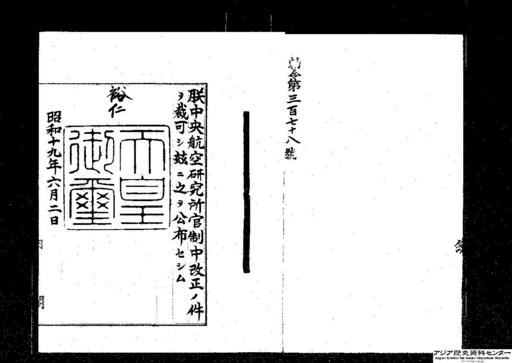 勅令第三百七十八號
朕中央航空研究所官制中改正ノ件
ヲ裁可シ玆ニ之ヲ公布セシム
裕仁
天皇
御璽
昭和十九年六月二日
アジア歴史資料センター
Japan Center for Asian Historical Records